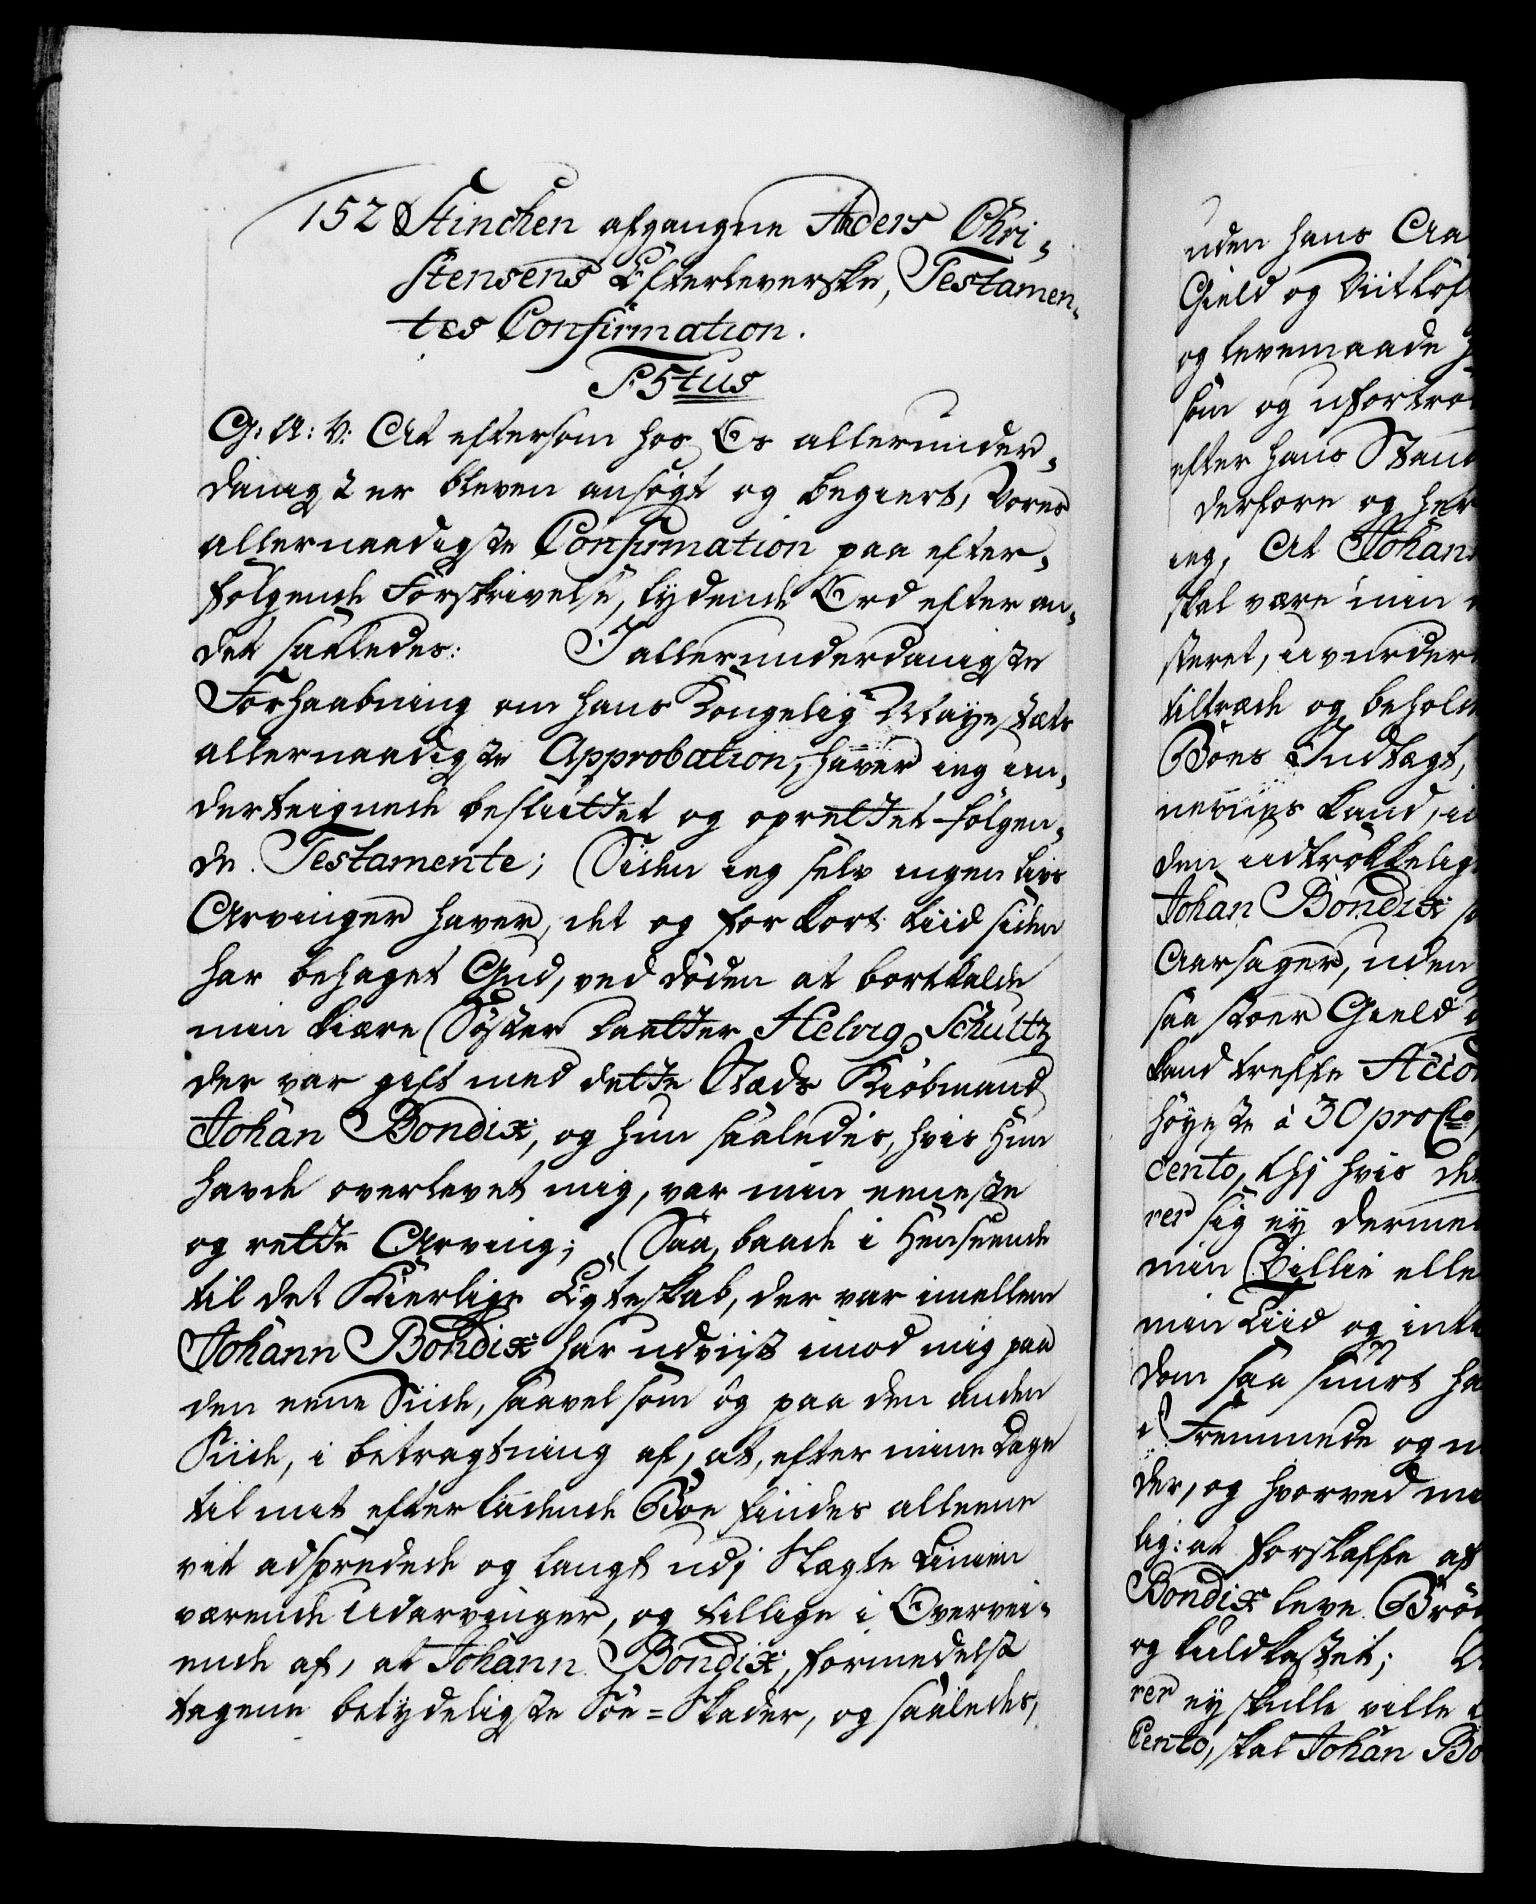 152 Stinchen afgangne Anders Chri-
stensens Efterleverske, Testamen-
tes Confirmation.
F. 5tus
G: A: V: At eftersom hos Os allerunder-
danigst er bleven ansøgt og begiert, Vores
allernaadigste Confirmation paa efter-
følgende Forskrivelse, lydende Ord efter an-
det saaledes: I allerunderdanigste
Forhaabning om hans Kongelig Mayestæts
allernaadigste Approbation, haver ieg un-
derteignede besluttet og oprettet følgen-
de Testamente; Siden ieg selv ingen livs
Arvinger haver, det og for kort tiid siden
har behaget Gud, ved døden at bortkalde
min kiære Søster Daatter Helvig Schultz
der var gift med dette Stæds Kiøbmand
Johan Bondix, og hun saaledes, hvis hun
havde overlevet mig, var min eeneste
og rette Arving; Saa, baade i Henseende
til det Kierlige Egteskab, der var imellem
Johann Bondix har udviist imod mig paa
den eene Siide, saavelsom og paa den anden
Siide, i betragtning af, at, efter mine Dage
til mit efterladende Boe findes alleene
vit adspredede og langt udj Slægte Linien
værende Udarvinger, og tillige i Overvei-
ende af, at Johann Bondix, formedelst
tagene betydeligste Søe-Skader, og saaledes,
uden hans Aa
Gield og Viitløf
og levemaade
som og ufortrø
efter hans Stan
derfore og her
ieg, At Johan
skal være min
steret, uvurder
tiltræde og behold
Boes Indtægt,
nevnes kand, i
den udtrøkkelig
Johan Bondix
Aarsager, uden
saa stoer Gield
kand treffe Acco
høyeste á 30 pro Cto
cento, thj hvis de
rer sig ey derme
min Villie elle
min Tiid og int
dom saa suurt ha
Fremmede og
der, og hvorved m
lig: at forskaffe af
Bondix leve Brød
og kuldkastet;
rer ey skulle ville
Cento, skal Johan Bo